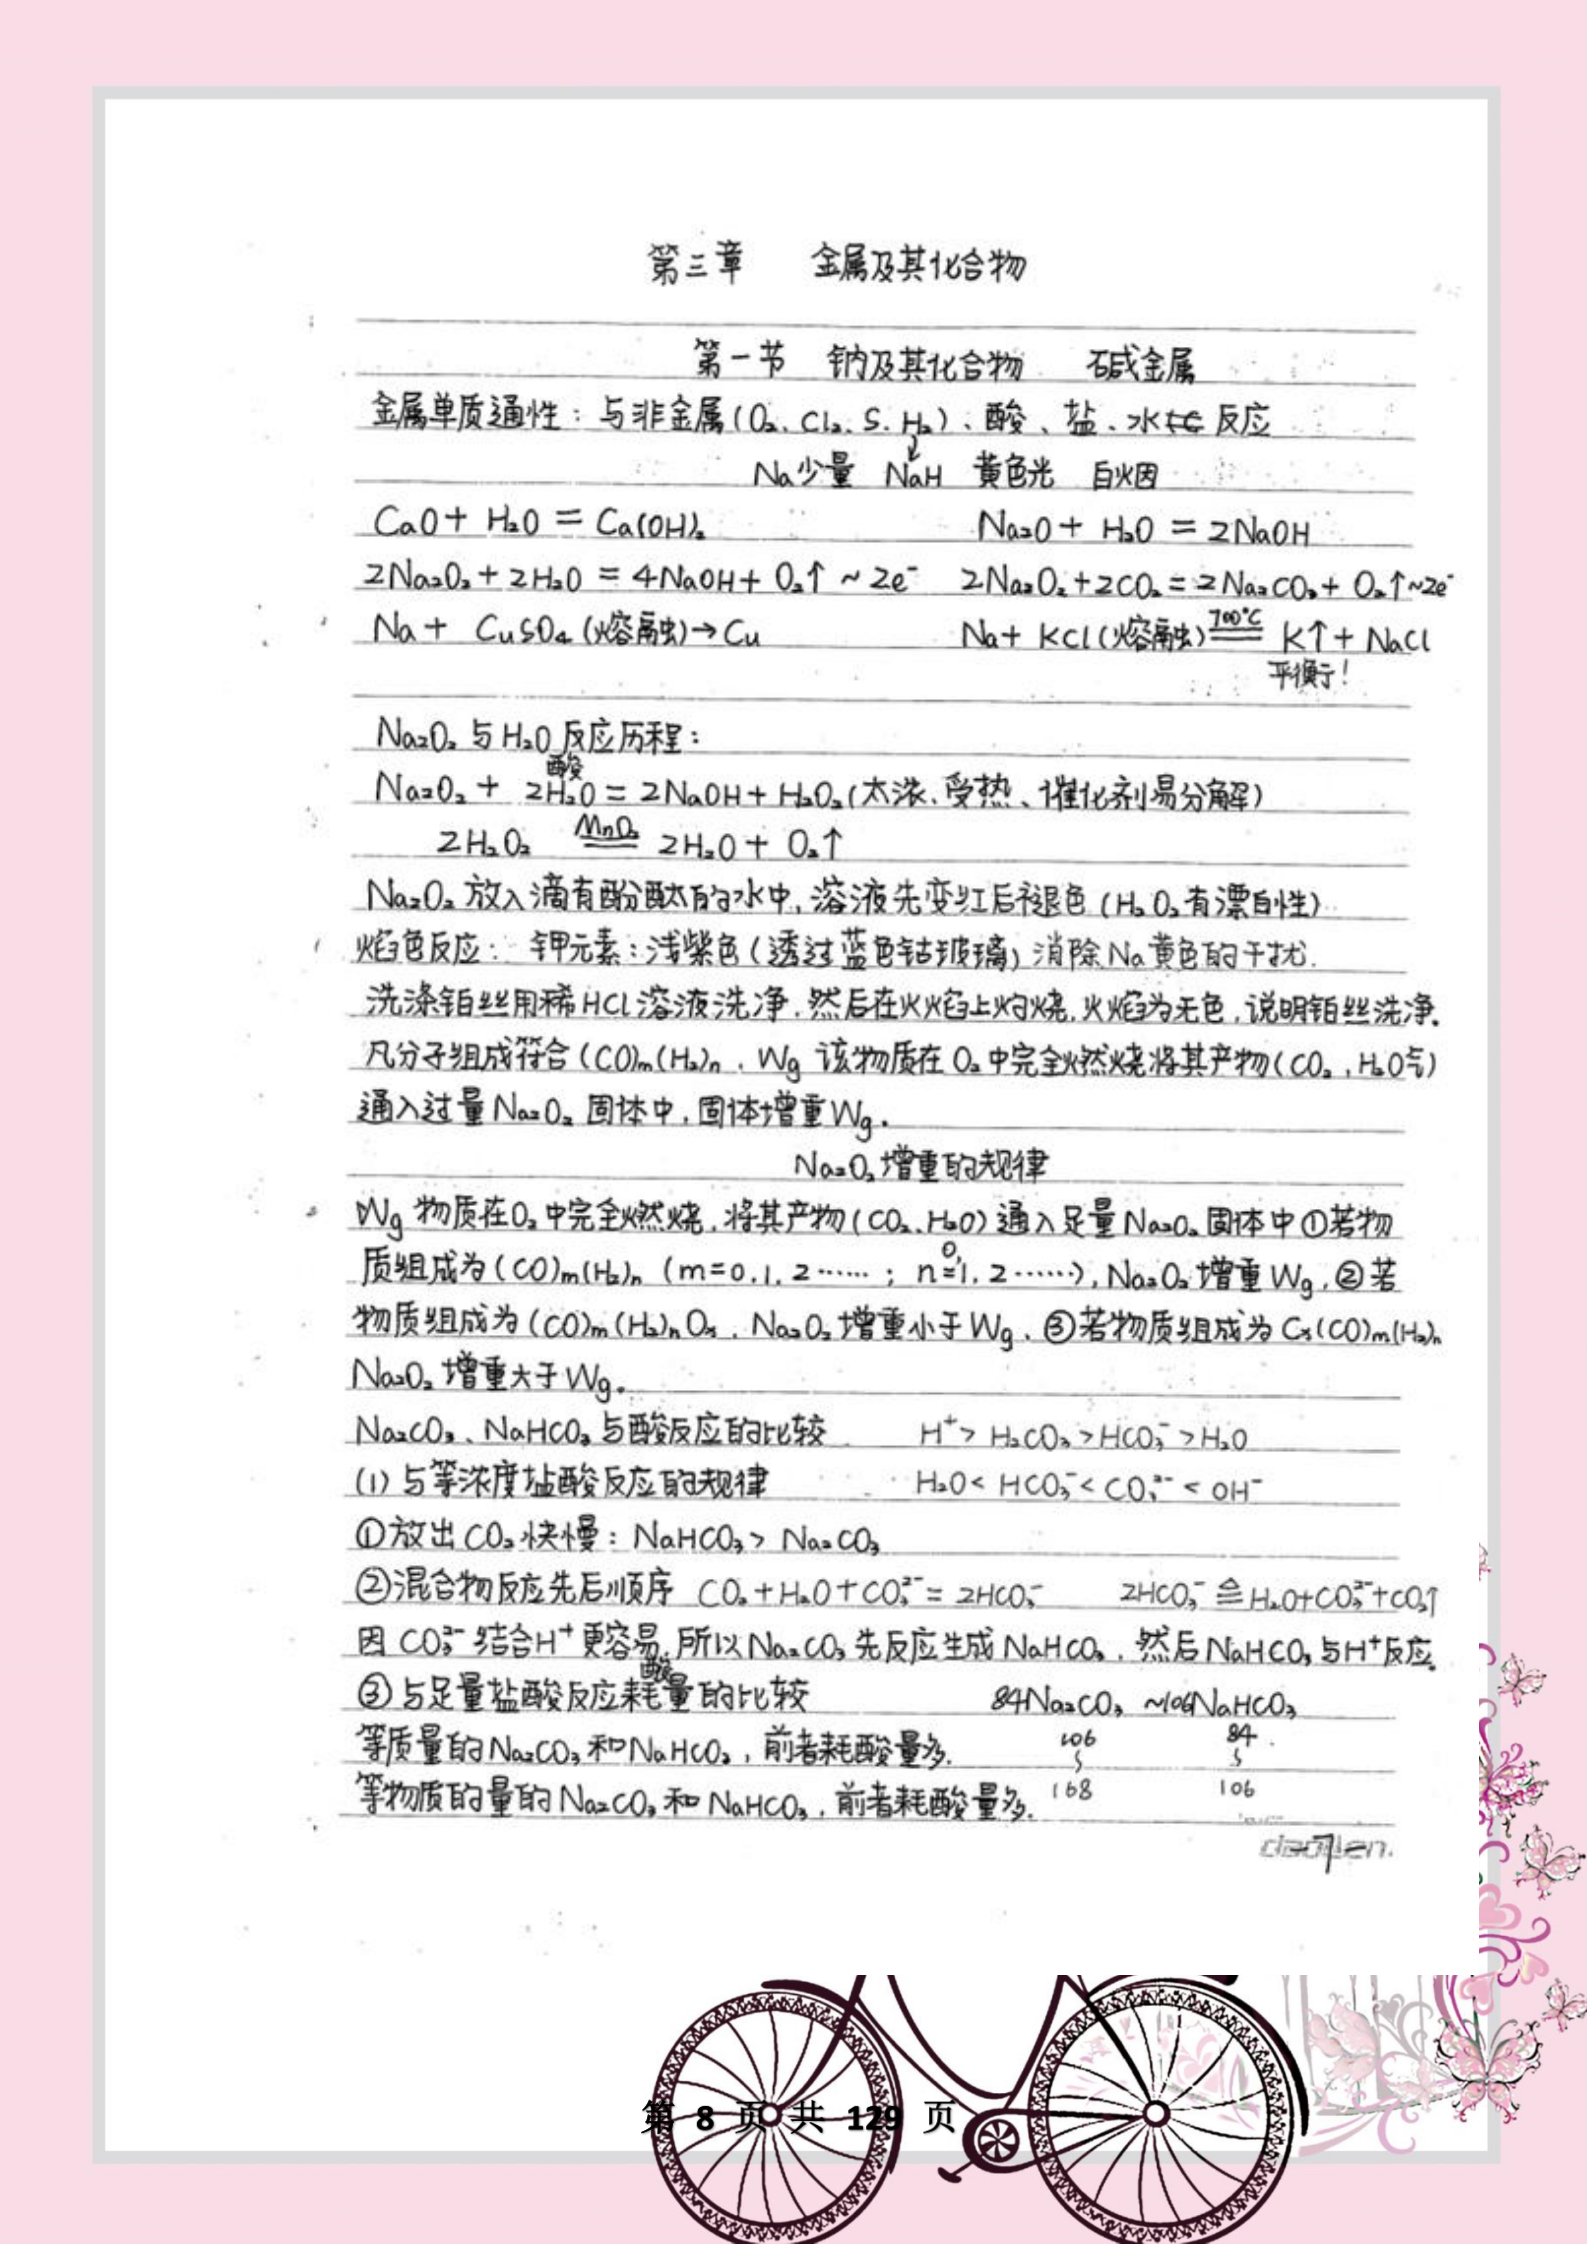 第三章 金属及其化合物
第一节 钠及其化合物 碱金属
金属单质通性：与非金属(O₂、Cl₂、S、H₂)、酸、盐、水 反应
Na少量 NaH 黄色光 白烟
CaO + H₂O = Ca(OH)₂ Na₂O + H₂O = 2NaOH
2Na₂O₂ + 2H₂O = 4NaOH + O₂↑ ~ 2e⁻ 2Na₂O₂ + 2CO₂ = 2Na₂CO₃ + O₂↑ ~2e⁻
Na + CuSO₄ (熔融) → Cu Na + KCl (熔融) =700℃= K↑ + NaCl
平衡!
Na₂O₂ 与 H₂O 反应历程：
酸
Na₂O₂ + 2H₂O = 2NaOH + H₂O₂ (太浓、受热、催化剂易分解)
2H₂O₂ =MnO₂= 2H₂O + O₂↑
Na₂O₂ 放入滴有酚酞的水中，溶液先变红后褪色 (H₂O₂有漂白性)
焰色反应： 钾元素：浅紫色 (透过蓝色钴玻璃) 消除Na黄色的干扰.
洗涤铂丝用稀HCl溶液洗净，然后在火焰上灼烧，火焰为无色，说明铂丝洗净.
凡分子组成符合(CO)m(H₂)n，Wg 该物质在O₂中完全燃烧将其产物(CO₂，H₂O气)
通入过量Na₂O₂固体中，固体增重Wg.
Na₂O₂增重的规律
Wg 物质在O₂中完全燃烧，将其产物(CO₂、H₂O)通入足量Na₂O₂固体中①若物
质组成为(CO)m(H₂)n (m=0,1,2……；n=0,1,2……)，Na₂O₂增重Wg，②若
物质组成为(CO)m(H₂)nOx，Na₂O₂增重小于Wg，③若物质组成为Cx(CO)m(H₂)n
Na₂O₂增重大于Wg.
Na₂CO₃、NaHCO₃与酸反应的比较 H⁺>H₂CO₃>HCO₃⁻>H₂O
(1) 与等浓度盐酸反应的规律 H₂O<HCO₃⁻<CO₃²⁻<OH⁻
①放出CO₂快慢：NaHCO₃> Na₂CO₃
②混合物反应先后顺序 CO₂+H₂O+CO₃²⁻=2HCO₃⁻ 2HCO₃⁻ ≙ H₂O+CO₃²⁻+CO₂↑
因CO₃²⁻结合H⁺更容易，所以Na₂CO₃先反应生成NaHCO₃，然后NaHCO₃与H⁺反应.
酸
③与足量盐酸反应耗量的比较 84Na₂CO₃ ~106NaHCO₃
等质量的Na₂CO₃和NaHCO₃，前者耗酸量多. 106 84
等物质的量的Na₂CO₃和NaHCO₃，前者耗酸量多. 168 106
7
第 8 页 共 129 页